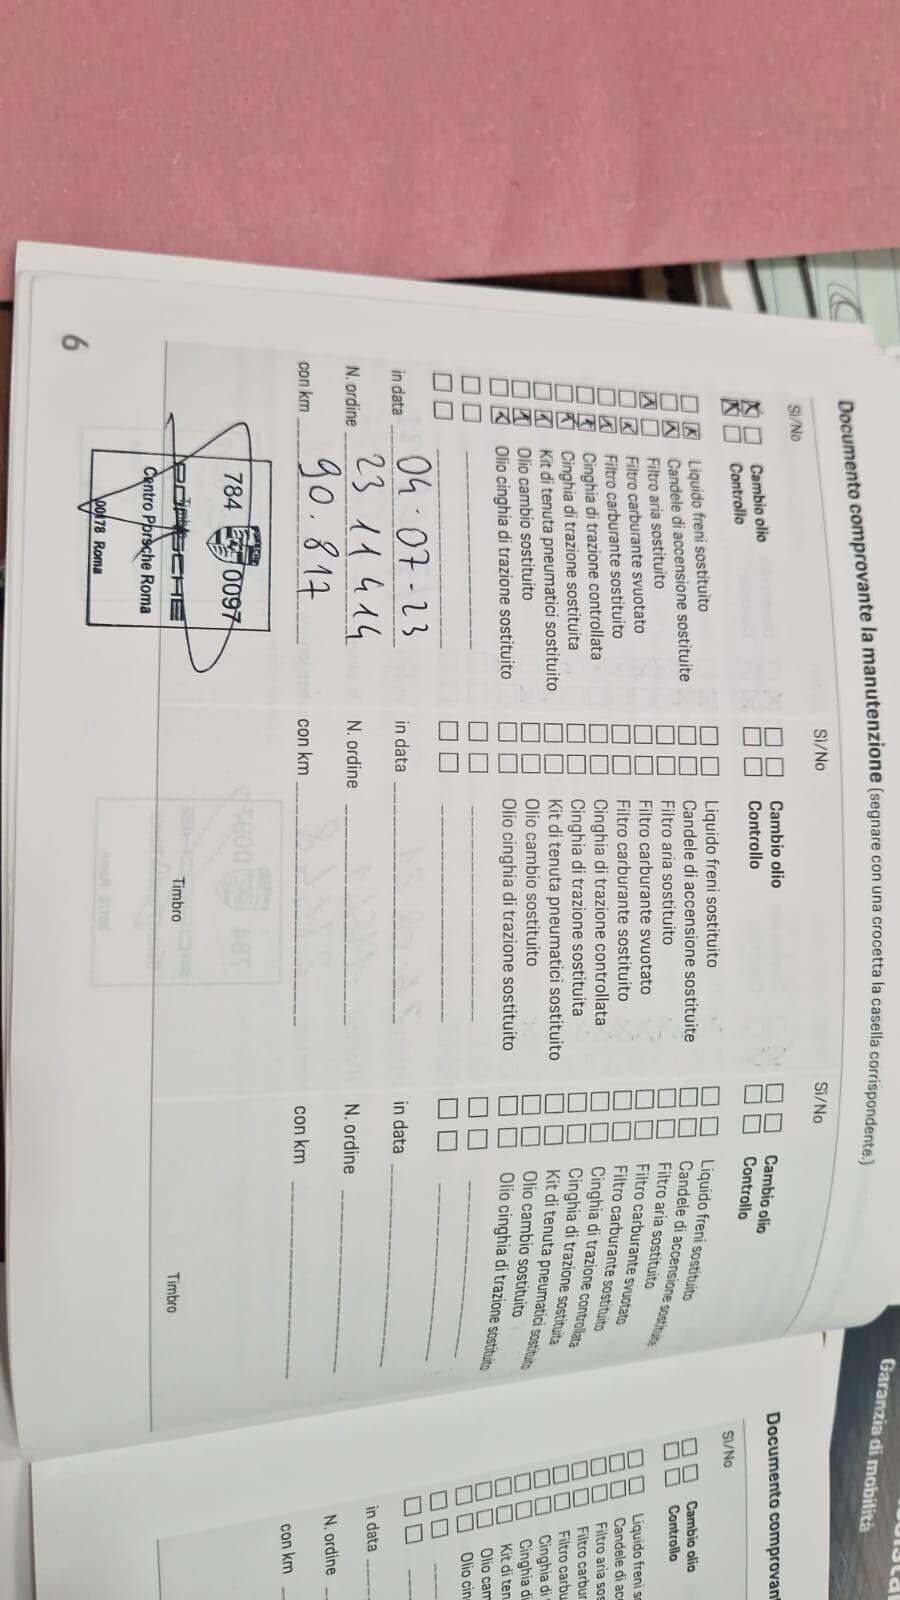 Documento comprovante la manutenzione (segnare con una crocetta la casella corrispondente.)
Sì/No
Cambio olio
Controllo
Liquido freni sostituito
Candele di accensione sostituite
Filtro aria sostituito
Filtro carburante svuotato
Filtro carburante sostituito
Cinghia di trazione controllata
Cinghia di trazione sostituita
Kit di tenuta pneumatici sostituito
Olio cambio sostituito
Olio cinghia di trazione sostituito
in data 04-07-23
N. ordine 2311414
con km 90.817
784 0097
Timbro
PORSCHE
Centro Porsche Roma
00178 Roma
Sì/No
Cambio olio
Controllo
Liquido freni sostituito
Candele di accensione sostituite
Filtro aria sostituito
Filtro carburante svuotato
Filtro carburante sostituito
Cinghia di trazione controllata
Cinghia di trazione sostituita
Kit di tenuta pneumatici sostituito
Olio cambio sostituito
Olio cinghia di trazione sostituito
in data
N. ordine
con km
Timbro
Sì/No
Cambio olio
Controllo
Liquido freni sostituito
Candele di accensione sostituite
Filtro aria sostituito
Filtro carburante svuotato
Filtro carburante sostituito
Cinghia di trazione controllata
Cinghia di trazione sostituita
Kit di tenuta pneumatici sostituito
Olio cambio sostituito
Olio cinghia di trazione sostituito
in data
N. ordine
con km
Timbro
6
Garanzia di mobilità
Documento comprovan
Sì/No
Cambio olio
Controllo
Liquido freni s
Candele di ac
Filtro aria sos
Filtro carbur
Filtro carbu
Cinghia di
Cinghia di
Kit di ten
Olio cam
Olio cin
in data
N. ordine
con km